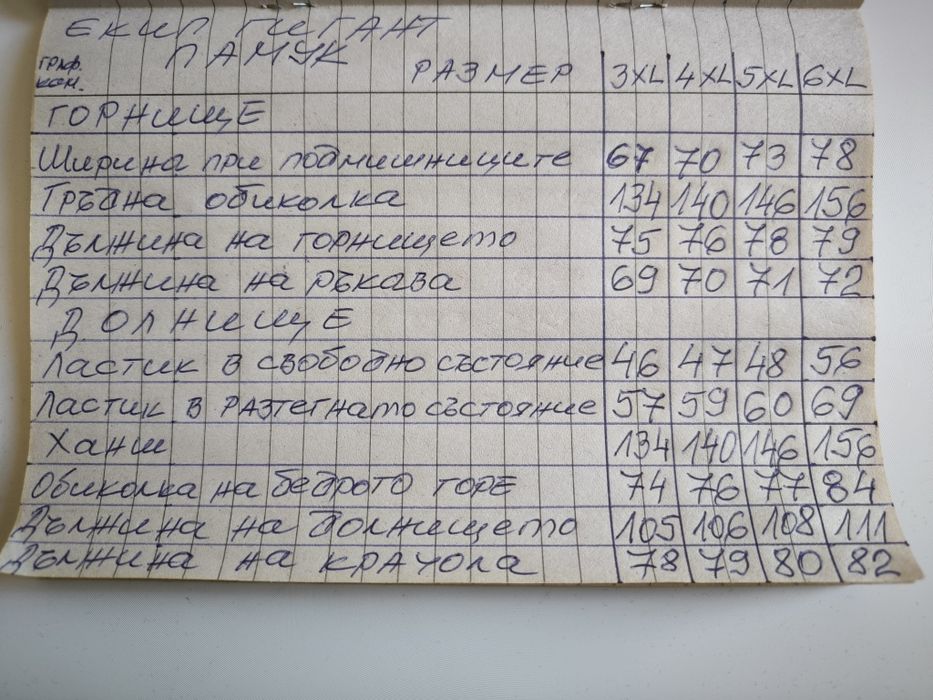 ЕКИП ГИГАНТ
ПАМУК
граф.
ком. РАЗМЕР 3XL 4XL 5XL 6XL
ГОРНИЩЕ
Ширина при подмишниците 67 70 73 78
Гръдна обиколка 134 140 146 156
Дължина на горнището 75 76 78 79
Дължина на ръкава 69 70 71 72
ДОЛНИЩЕ
Ластик в свободно състояние 46 47 48 56
Ластик в разтегнато състояние 57 59 60 69
Ханш 134 140 146 156
Обиколка на бедрото горе 74 76 77 84
Дължина на долнището 105 106 108 111
Дължина на крачола 78 79 80 82